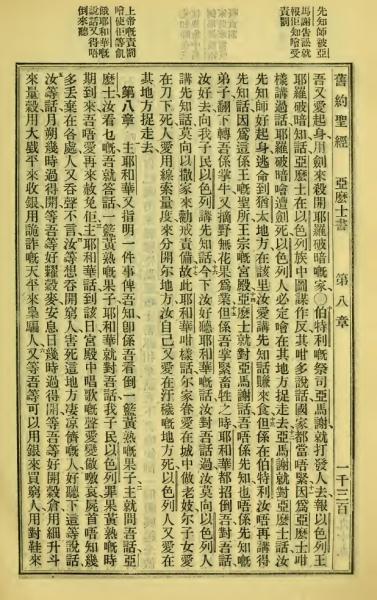 先知師被亞
馬謝告訟就
報佢知噲受
責罰
上帝嘅責罰
噲使佢等飢
餓耶和華嘅
說話又得唔
倒來聽
舊約聖經 亞麼士書 第八章 一千三百
吾又愛起身、用劍來殺開耶羅破暗嘅家、〇伯特利嘅祭司亞馬謝就打發人去報以色列王
耶羅破暗知話、亞麼士在以色列族中圖謀作反、其咁多說話國家都當唔緊、因爲亞麼士咁
樣講過話、耶羅破暗噲遭劍死、以色列人必定噲在其地方捉走去、亞馬謝就對亞麼士話、汝
先知師好起身逃命到猶太地方、在該里汝愛講先知話賺來食、但係在伯特利汝唔再講得
先知話、因爲這係王嘅聖所、王宗嘅宮殿、亞麼士就對亞馬謝話、吾唔係先知、也唔係先知嘅
弟子、翻下轉吾係掌牛又摘野無花果爲業、但係吾掌緊畜牲之時耶和華都招倒吾、對吾話、
汝好去向我子民以色列講先知話、今下汝好聽耶和華嘅話、汝對吾話過、汝莫向以色列人
講先知話、莫向以撒家來勸戒責備、故此耶和華咁樣話、尔家眷愛在城中做老妓、尔子女愛
在刀下死、人愛用線索量度來分開尔地方、汝自己又愛在汙穢嘅地方死、以色列人又愛在
其地方捉走去、
第八章 主耶和華又指明一件事俾吾知、卽係吾看倒一籃黃熟嘅果子、主就問吾話、亞
麼士汝看乜嘅、吾就答話、一籃黃熟嘅果子、耶和華就對吾話、我子民以色列罪果黃熟嘅時
期到來、吾唔愛再來赦免佢、主耶和華話、到該日宮殿中唱歌嘅聲愛變做噭哀、屍首唔知幾
多、丟棄在各處、人又吞聲不言、汝等想吞開窮人害死這地方凄凉儕嘅人、好聽下這等說話、
汝等話、月朔幾時過得開、等吾等好糶穀麥、安息日幾時過得開、等吾等好開穀倉、用細升斗
來量穀、用大戥平來收銀、用詭詐嘅天平來皐騙人、又等吾等可以用銀來買窮人、用對鞋來